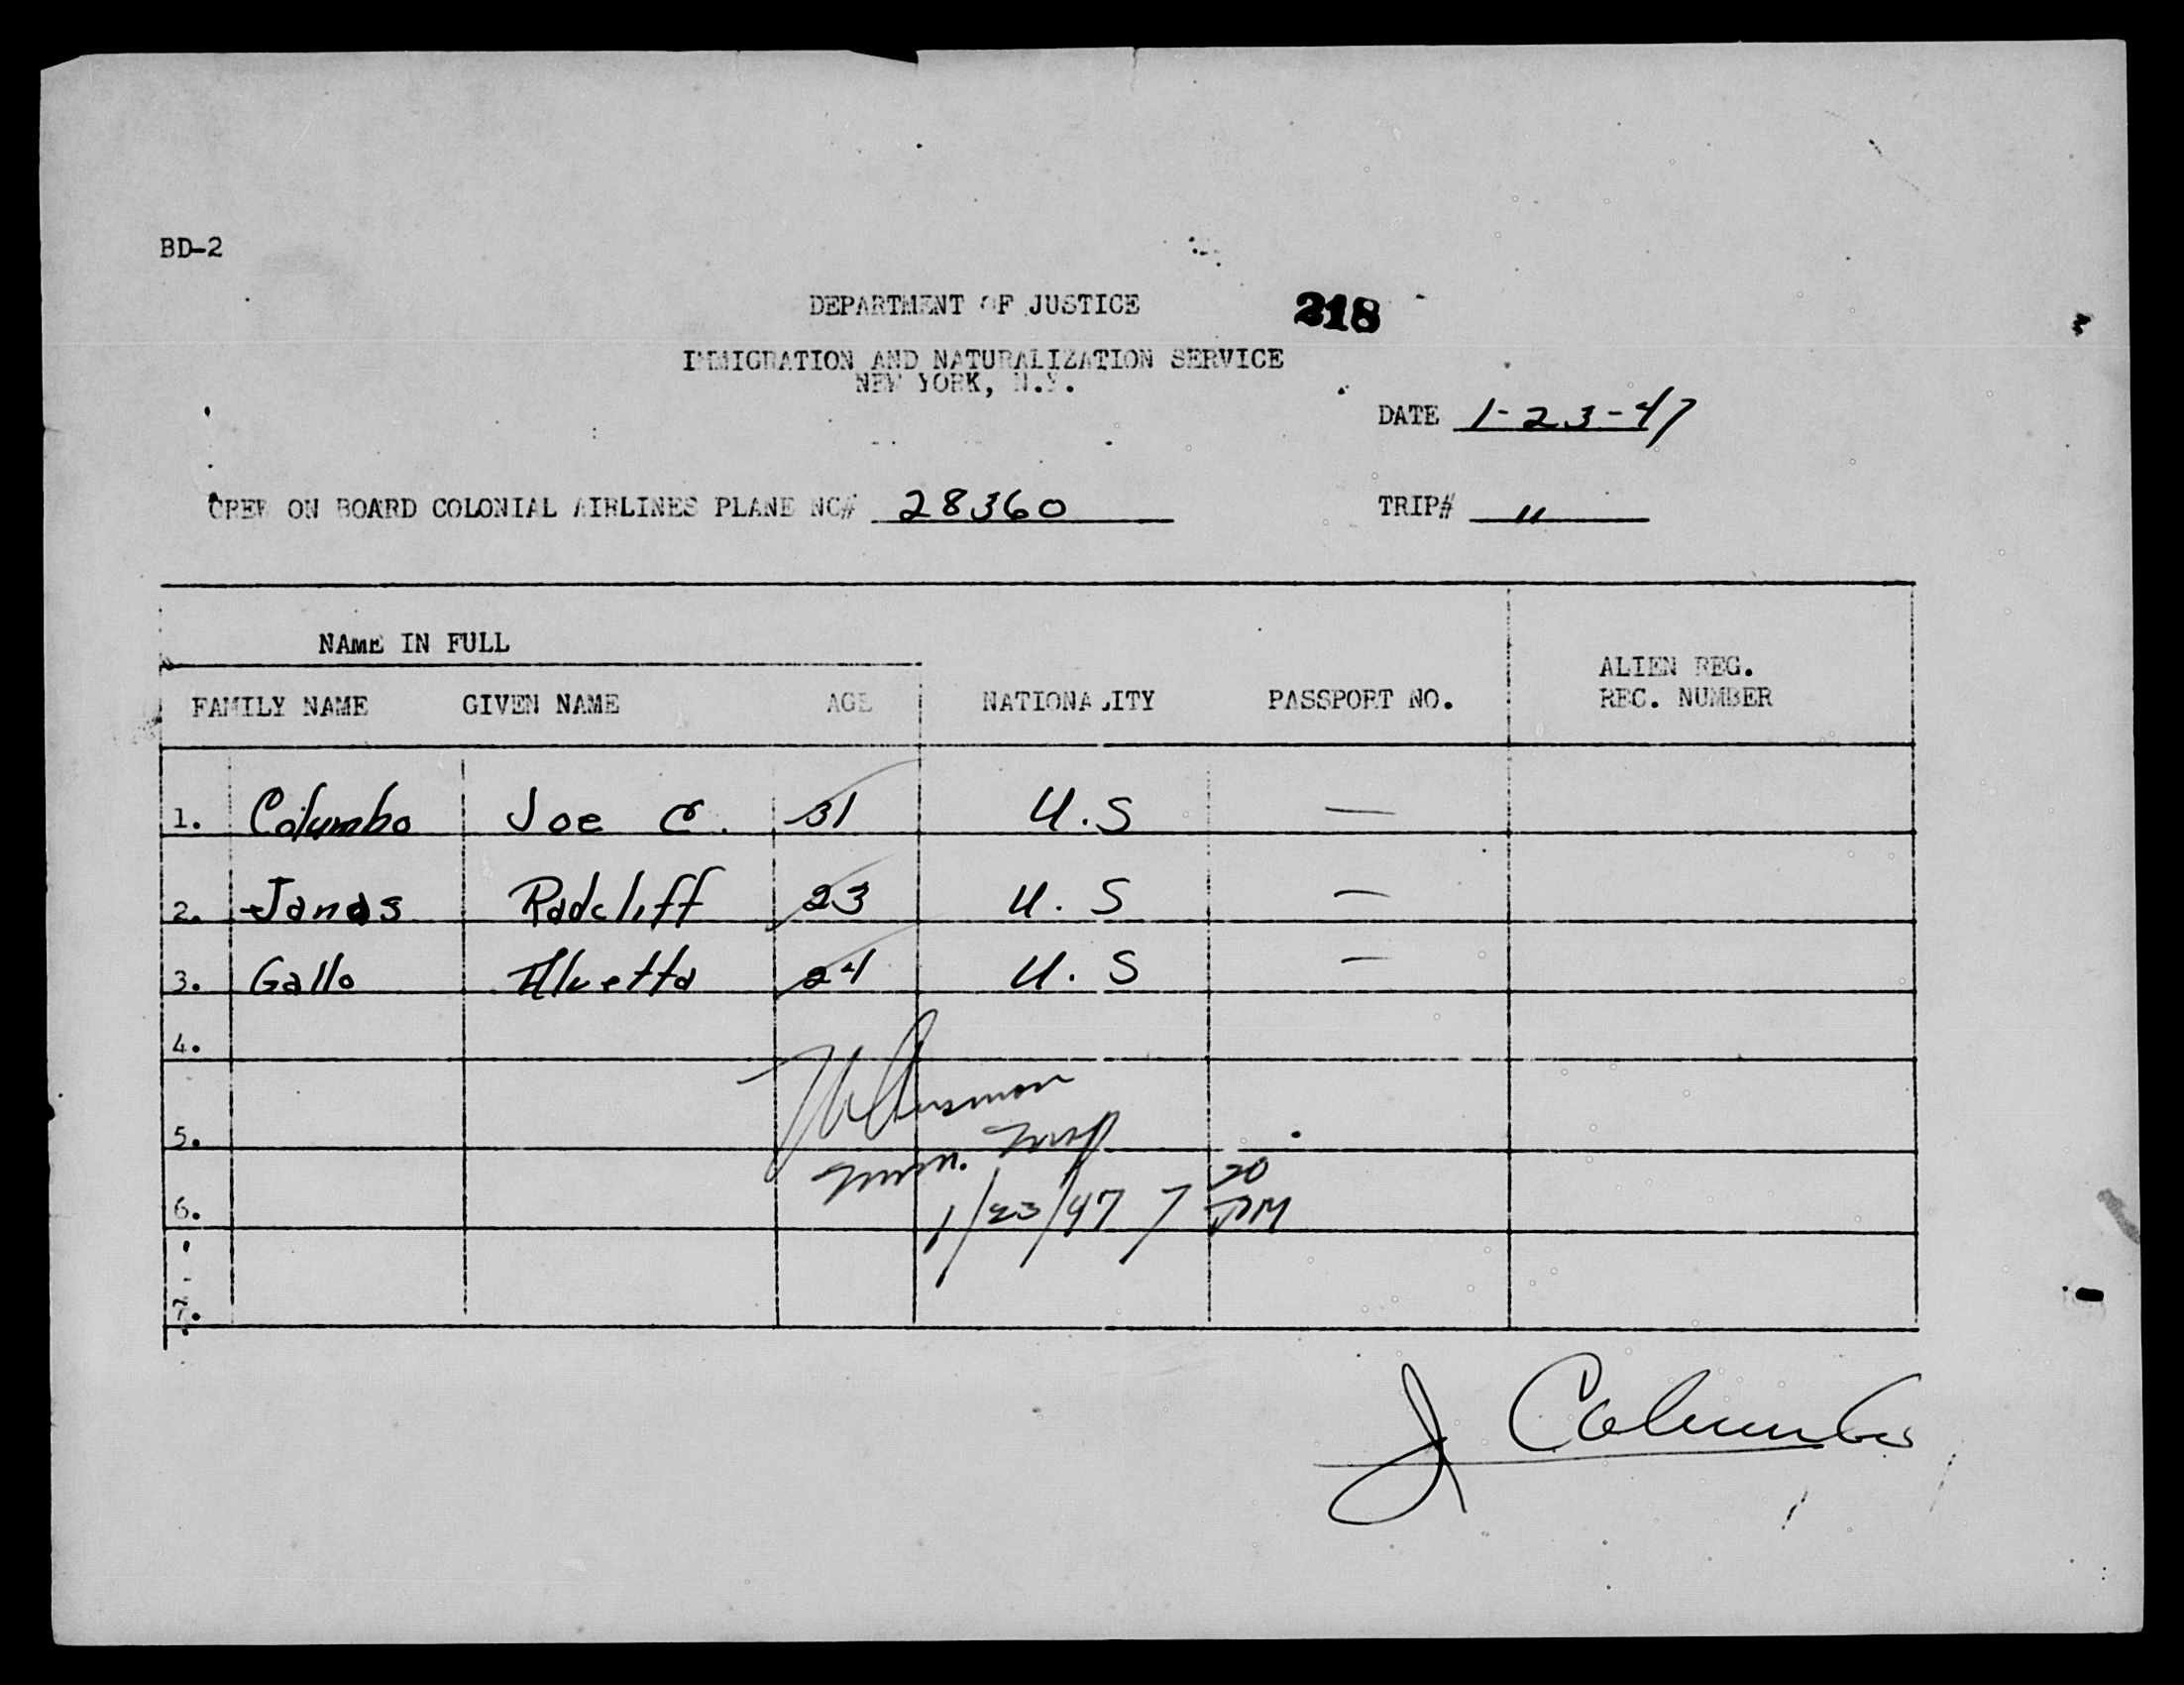 BD-2
DEPARTMENT OF JUSTICE 218
IMMIGRATION AND NATURALIZATION SERVICE
NEW YORK, N.Y.
DATE 1-23-47
CREW ON BOARD COLONIAL AIRLINES PLANE NC# 28360 TRIP# "
NAME IN FULL
ALIEN REG.
FAMILY NAME GIVEN NAME AGE NATIONALITY PASSPORT NO. REC. NUMBER
1. Columbo Joe C. 31 U.S —
2. Janas Radcliff 23 U.S —
3. Gallo 24 U.S —
4.
5.
Imm. Insp
20
6. 1/23/47 7 PM
7.
J Columbo